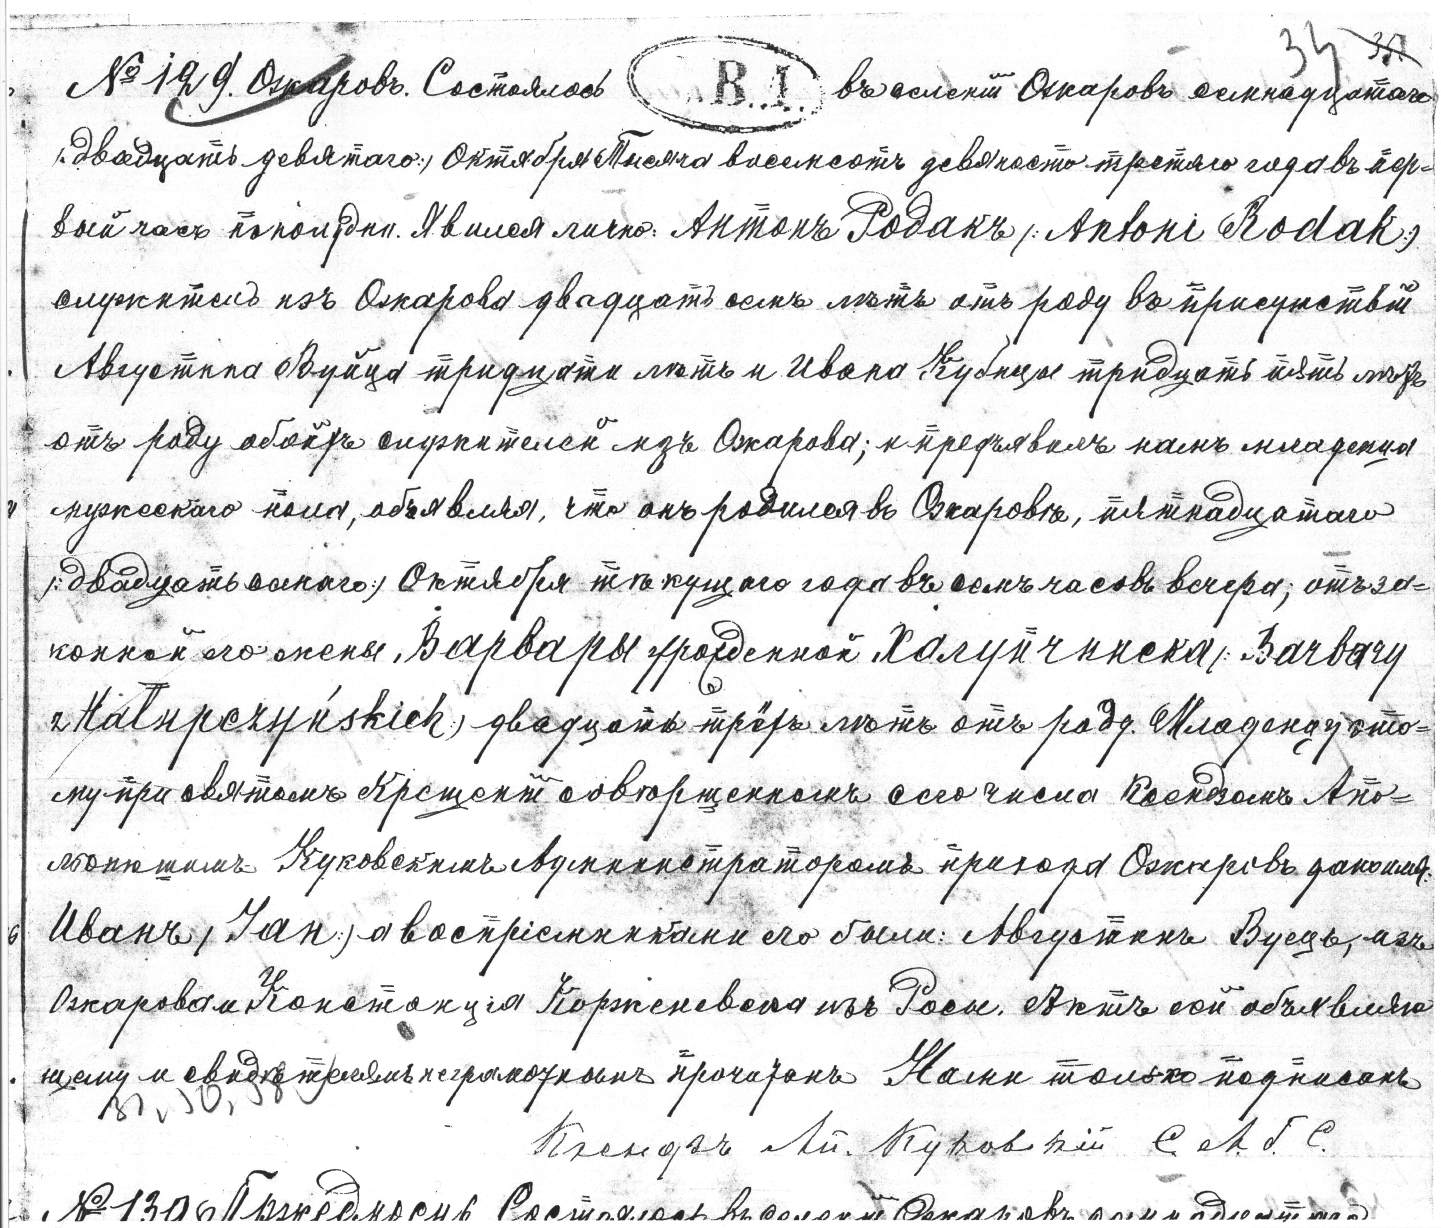 34 33
№ 129. Ожаровъ. Состоялось В. I. въ селеніи Ожаровъ семнадцатаго
/:двадцать девятаго:/ Октября Тысяча восемсотъ девяносто третяго года въ пер=
вый часъ пополудни. Явился лично: Антонъ Родакъ /: Antoni Rodak:/
служитель изъ Ожарова двадцать семь лѣтъ отъ роду въ присутствіи
Августина Вуйца тридцати лѣтъ и Ивана Кубицы тридцать пять лѣтъ
отъ роду обоихъ служителей изъ Ожарова; и предъявилъ намъ младенца
мужескаго пола, объявляя, что онъ родился въ Ожаровѣ, пятнадцатаго
/:двадцать семаго:/ Октября текущаго года въ семь часовъ вечера; отъ за=
конной его жены, Варвары урожденной Халупчинска /: Barbary
z Hałupczyńskich:/ двадцать трехъ лѣтъ отъ роду. Младенцу это=
му при святомъ Крещеніи совершенномъ сего числа Ксендзомъ Апо=
Куковскимъ Администраторомъ прихода Ожаровъ дано имя:
Иванъ /: Jan:/ а воспріемниками его были: Августинъ Вуецъ, изъ
Ожарова и Констанція Корженевска изъ Росы. Актъ сей объявляю
щему и свидѣтелямъ неграмотнымъ прочитанъ Нами только подписанъ
Ксендзъ Ап. Куковскій С. А. б. С.
№ 130 Состоялось въ селеніи Ожаровъ